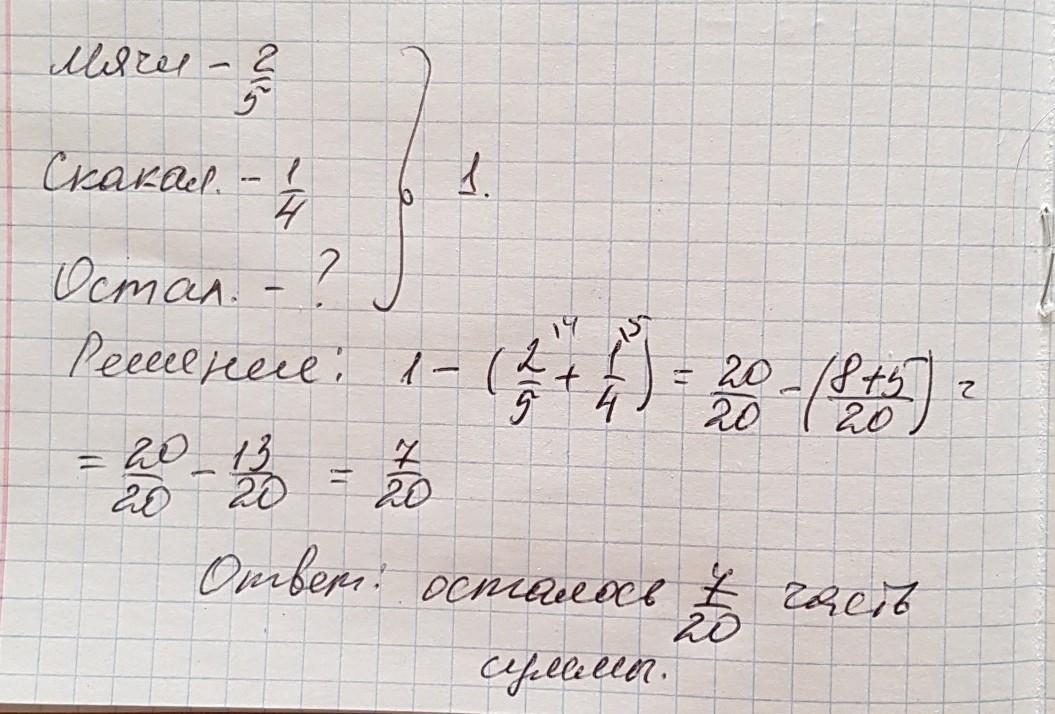 Мячи - 2/5
Скакал. - 1/4 } 1.
Остал. - ?
Решение: 1 - (2/5 \4 + 1/4 \5) = 20/20 - (8+5/20) =
= 20/20 - 13/20 = 7/20
Ответ: осталось 7/20 часть
суммы.